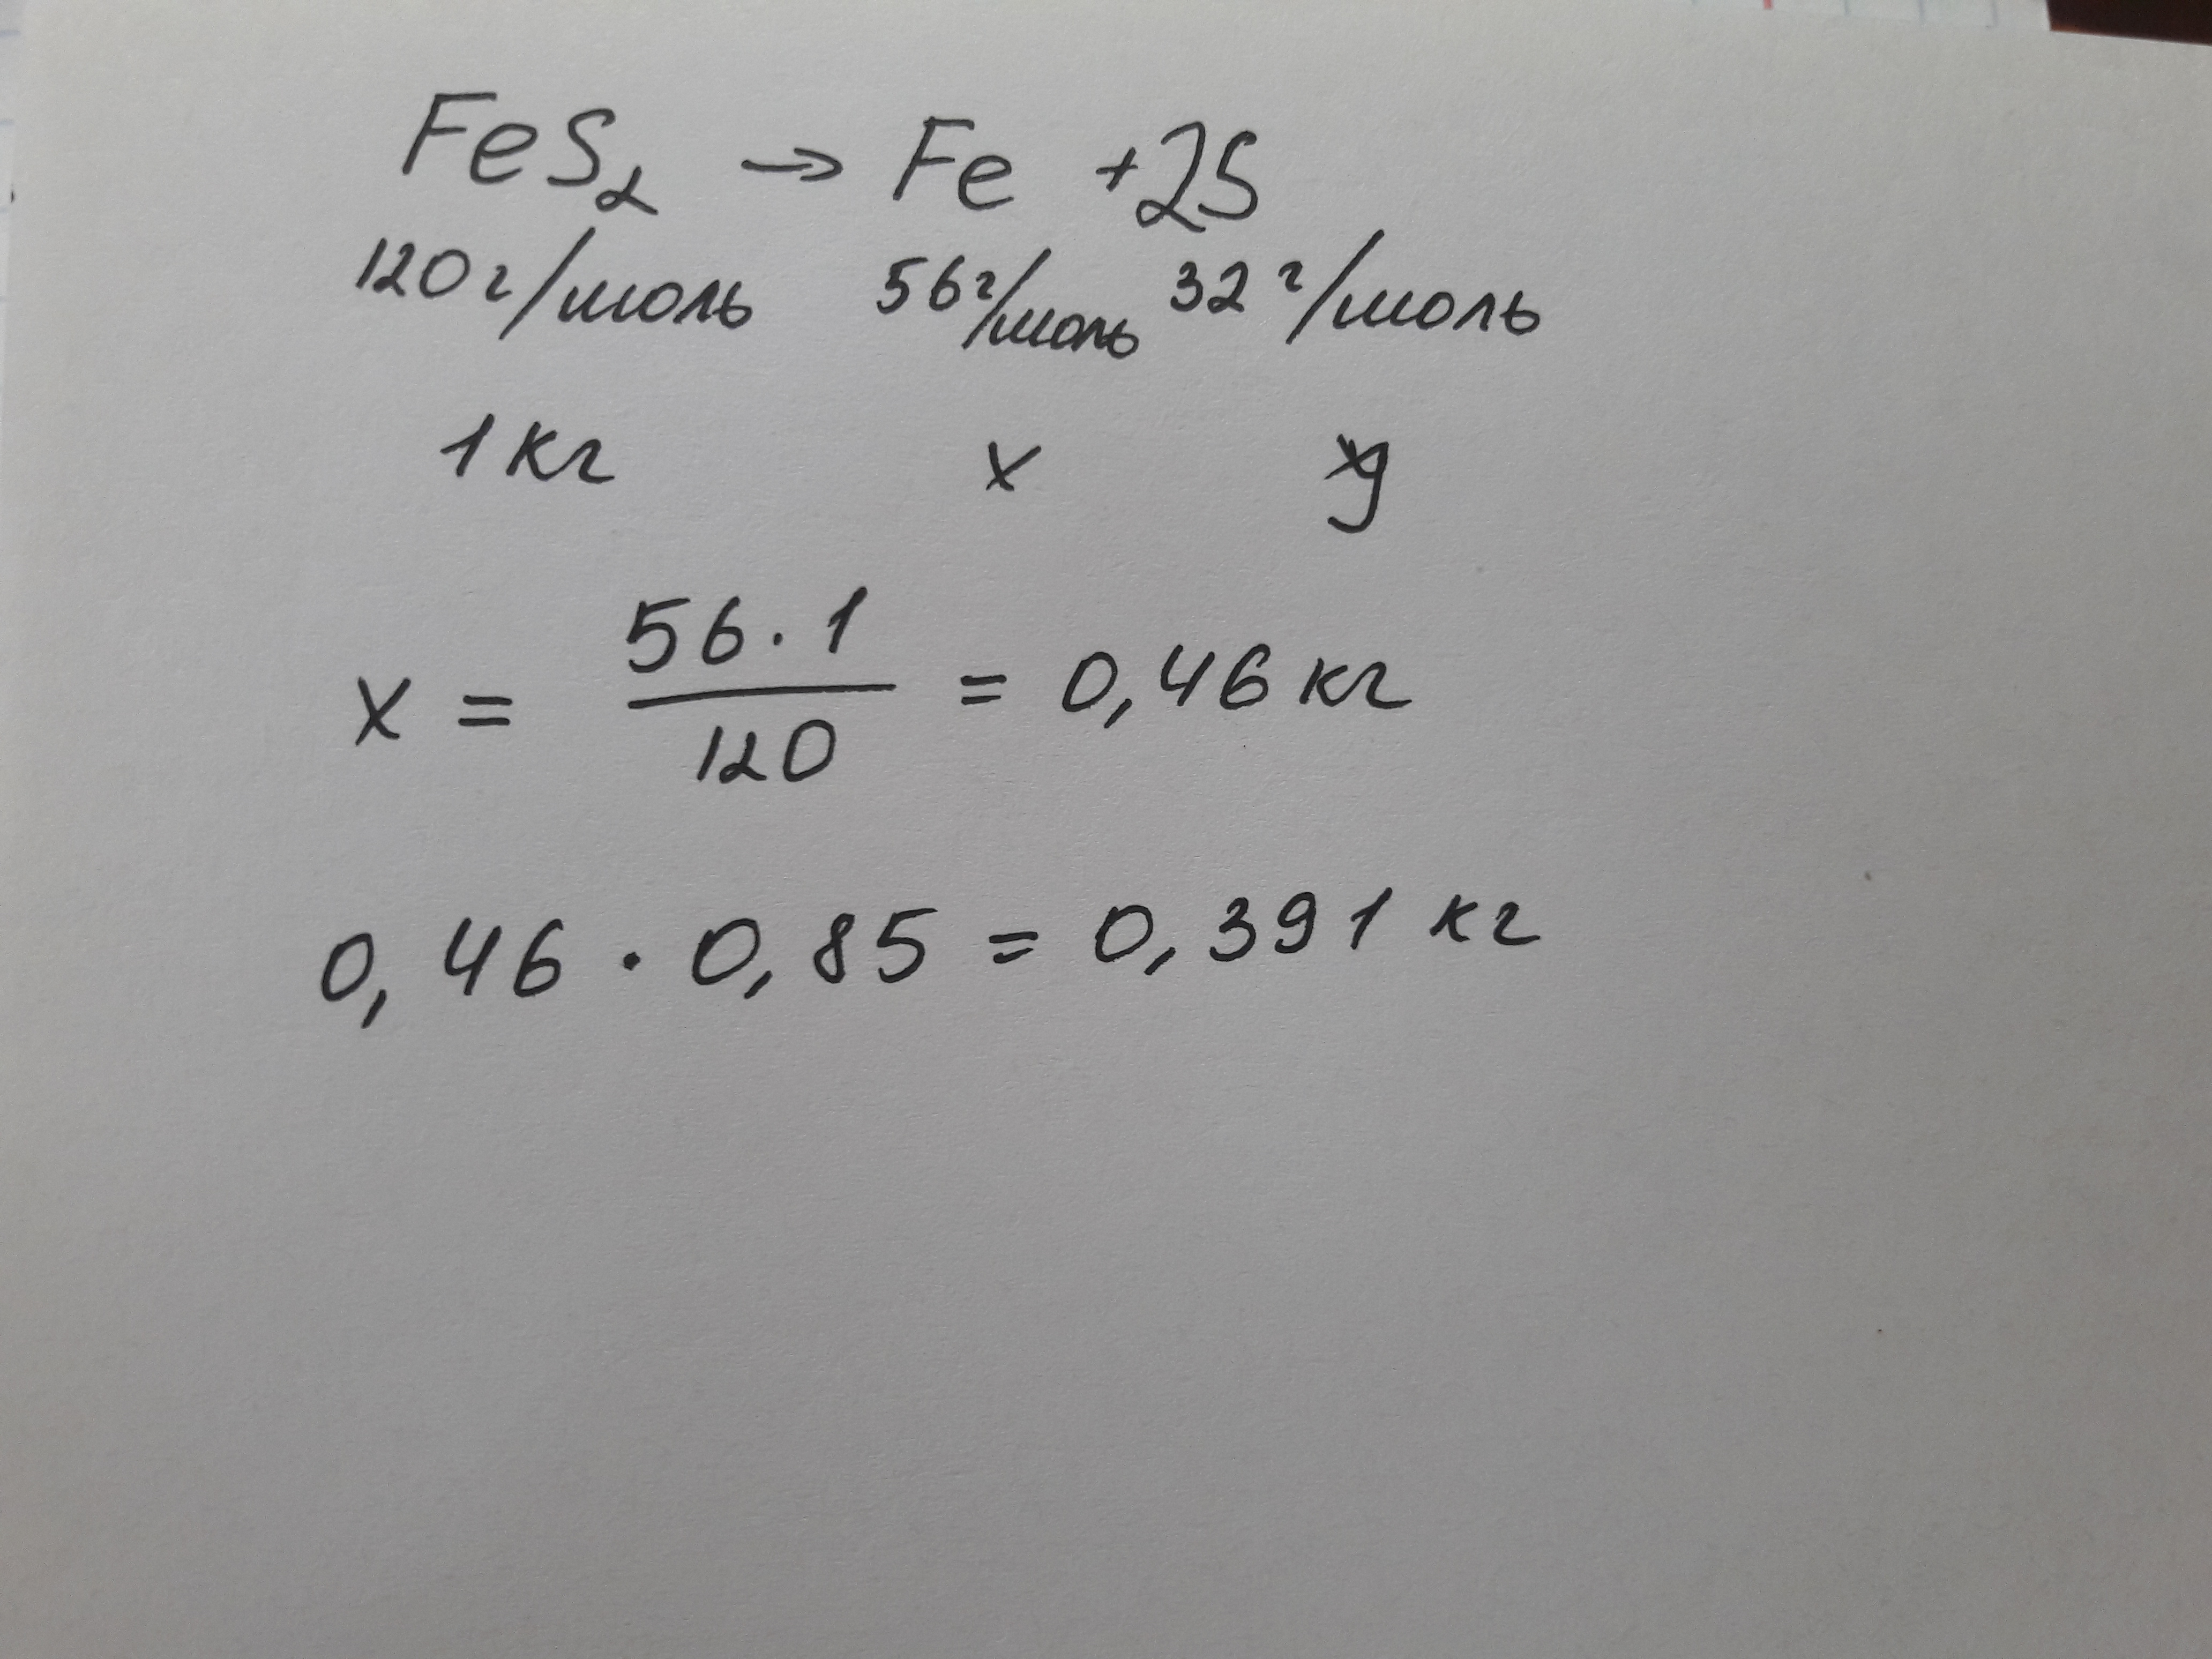 FeS₂ → Fe + 2S
120 г/моль 56 г/моль 32 г/моль
1 кг x y
x = 56 · 1 / 120 = 0,46 кг
0,46 · 0,85 = 0,391 кг